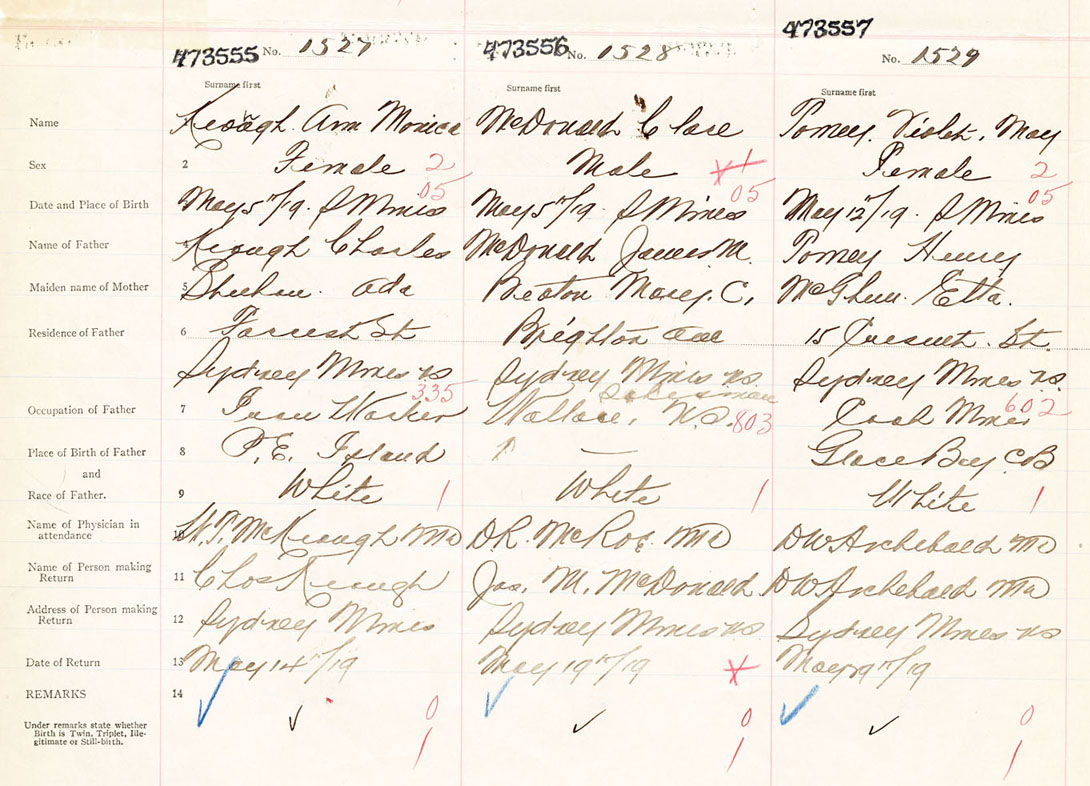 473555 No. 1527 473556 No. 1528 473557 No. 1529
Surname first Surname first Surname first
Name Keough Ann Monica McDonald Clare Pomey, Violet, May
Sex 2 Female 2 Male 1 Female 2
05 05 05
Date and Place of Birth May 5th/19. S Mines May 5th/19. S Mines May 12th/19. S Mines
Name of Father 4 Keough Charles McDonald James M. Pomey Henry
Maiden name of Mother 5 Sheehan. Ada Beaton Mary. C. McGhee. Etta.
Residence of Father 6 Forrest St Brighton Ave 15 Crescent. St.
Sydney Mines NS Sydney Mines NS. Sydney Mines NS.
335 Salesman 602
Occupation of Father 7 Worker Wallace, N.S. 803 Coal Miner
Place of Birth of Father 8 P.E. Island Glace Bay CB
and
Race of Father. 9 White 1 White 1 White 1
Name of Physician in
attendance 10 McKeough MD DR. McRae MD DW Archibald MD
Name of Person making
Return 11 Chas Keough Jas. M. McDonald DW Archibald MD
Address of Person making
Return 12 Sydney Mines Sydney Mines NS Sydney Mines NS
Date of Return 13 May 14th/19 May 19th/19 May 29th/19
REMARKS 14
Under remarks state whether
Birth is Twin, Triplet, Ille-
gitimate or Still-birth.
0 0 0
1 1 1